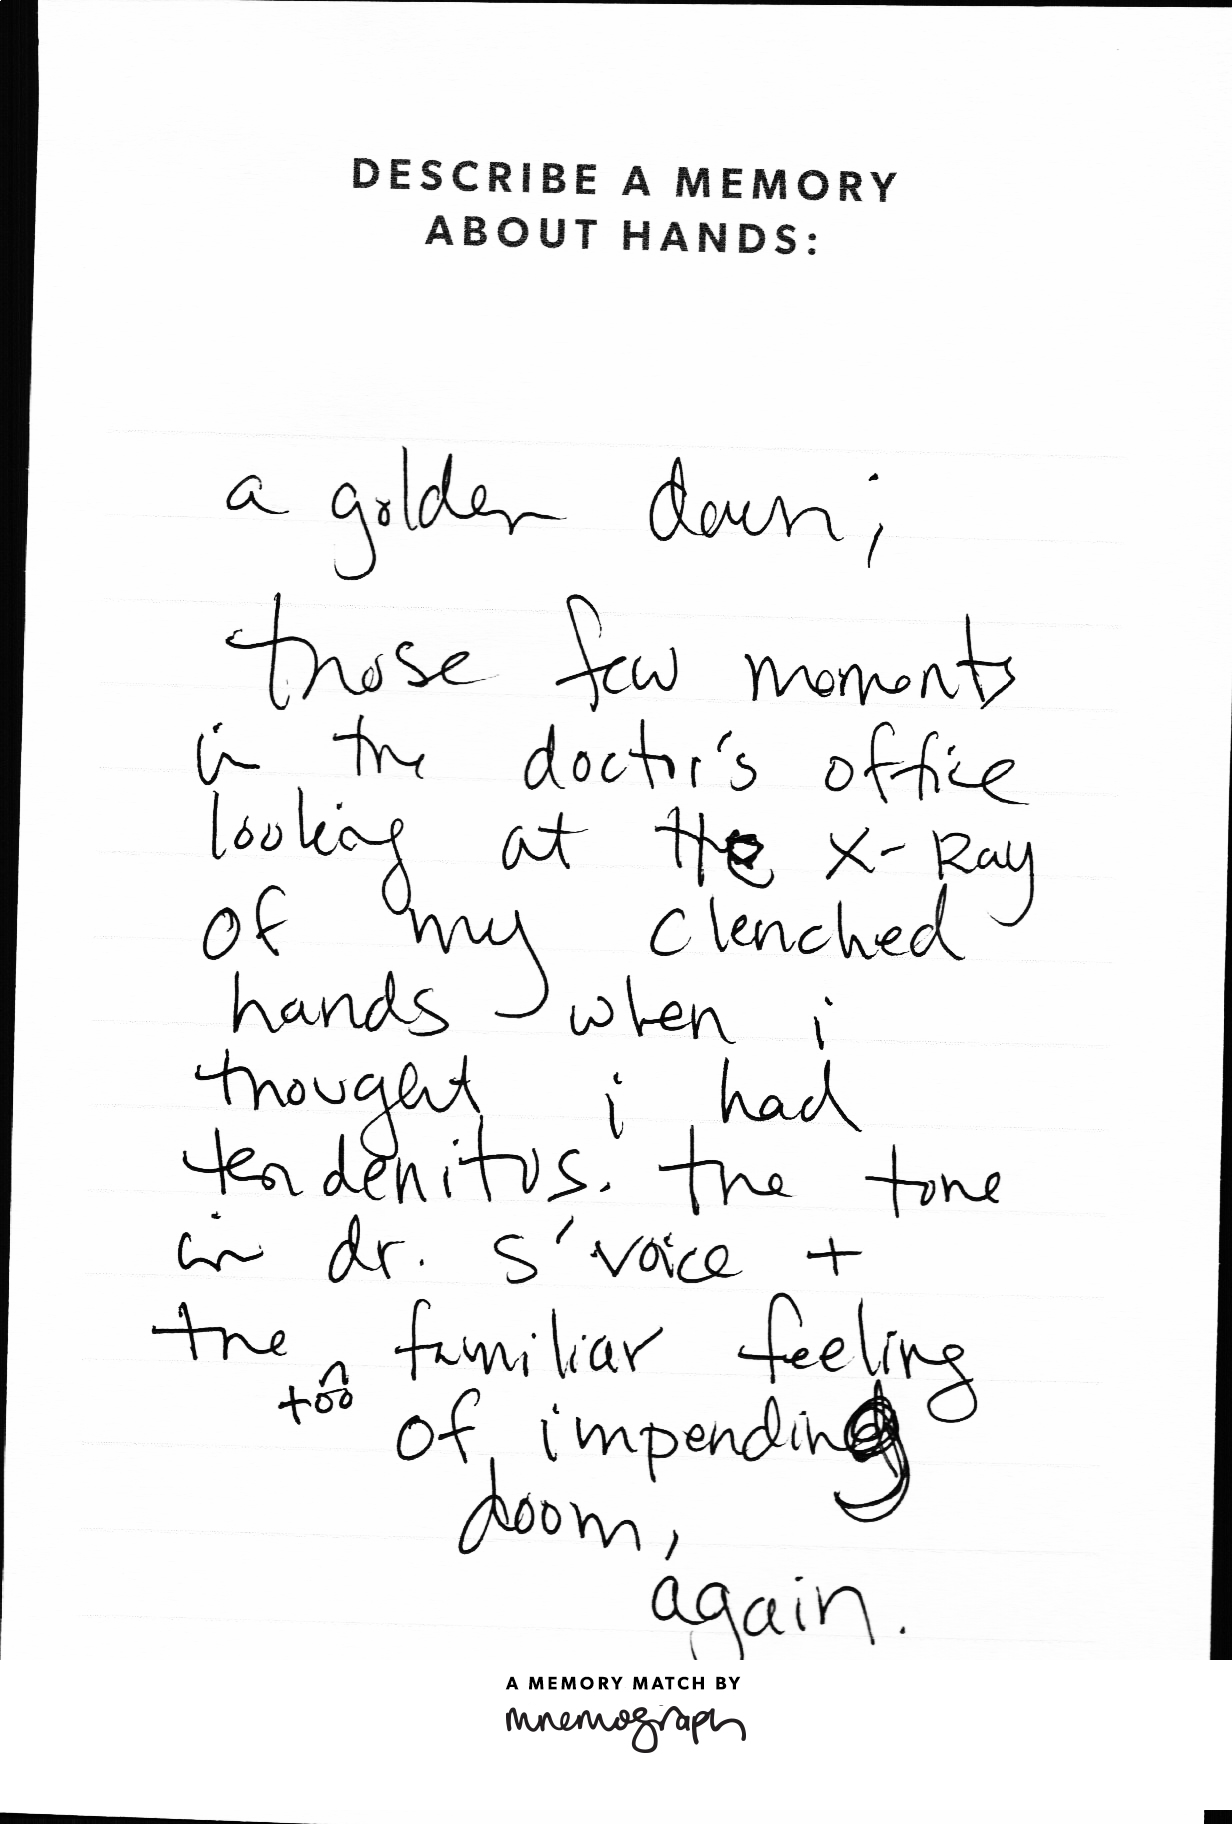 DESCRIBE A MEMORY
ABOUT HANDS:
a golden dawn;
those few moments
in the doctor's office
looking at the x-Ray
of my clenched
hands when i
thought i had
tendenitus. the tone
in dr. s' voice +
the too familiar feeling
of impending
doom,
again.
A MEMORY MATCH BY
mnemograph